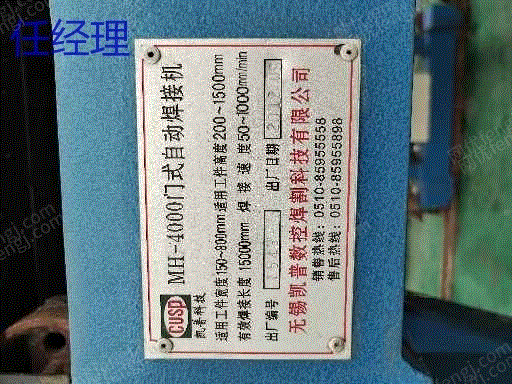 任经理
CUSP
凯普科技
MH-4000门式自动焊接机
适用工件宽度150~800mm 适用工件高度200~1500mm
有效焊接长度15000mm 焊接速度50~1000mm/min
出厂编号 出厂日期
无锡凯普数控焊割科技有限公司
销售热线: 0510-85955558
售后热线: 0510-85955898